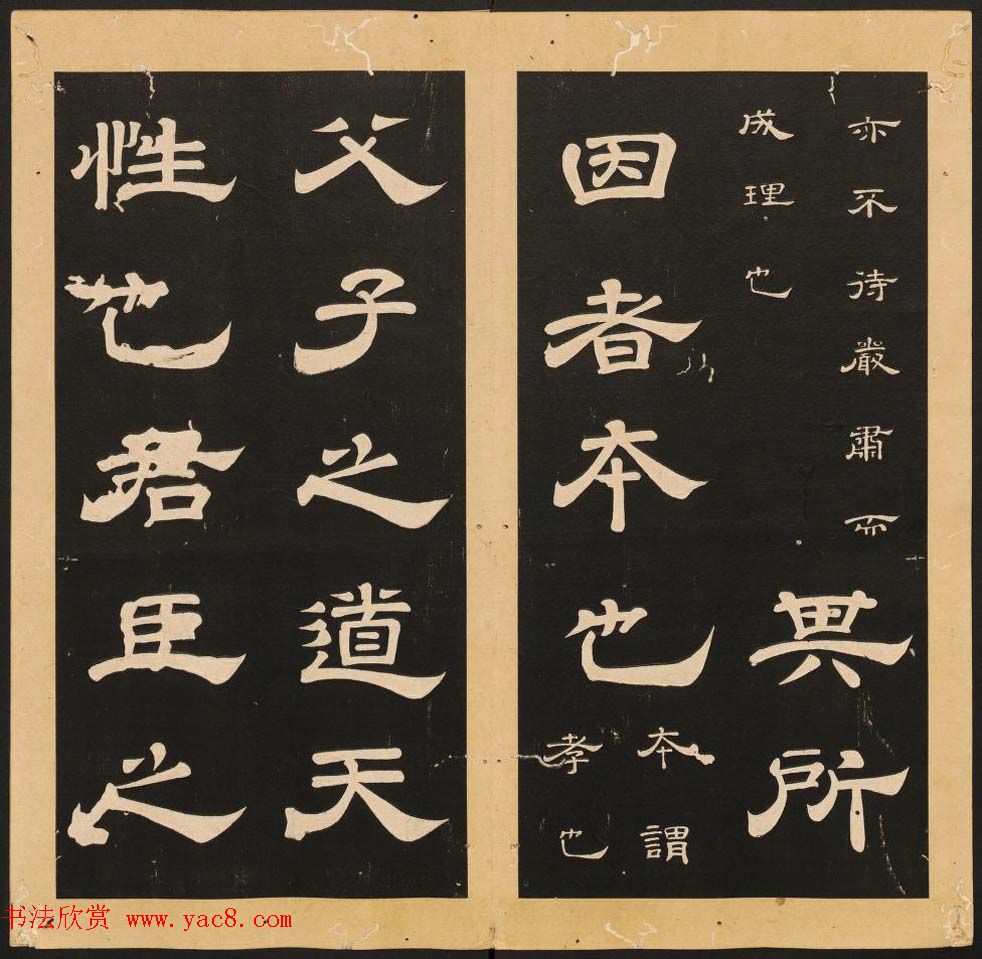 亦不待嚴肅而
成理也
其所
因者本也
本謂
孝也
父子之道天
性也君臣之
书法欣赏 www.yac8.com